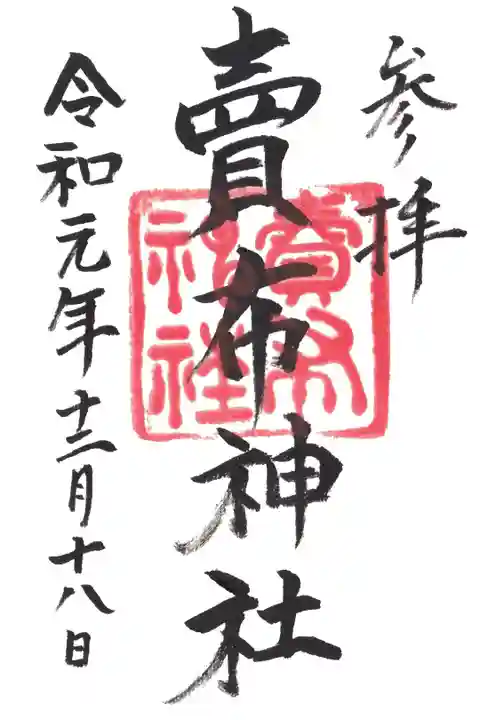 参拝
賣布神社
賣布
神社
令和元年十二月十八日